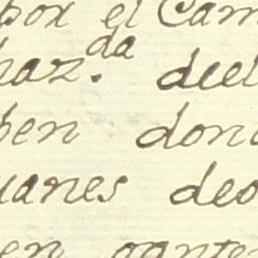 por el Cam
haz.da deel
ben dond
uanes deo
en